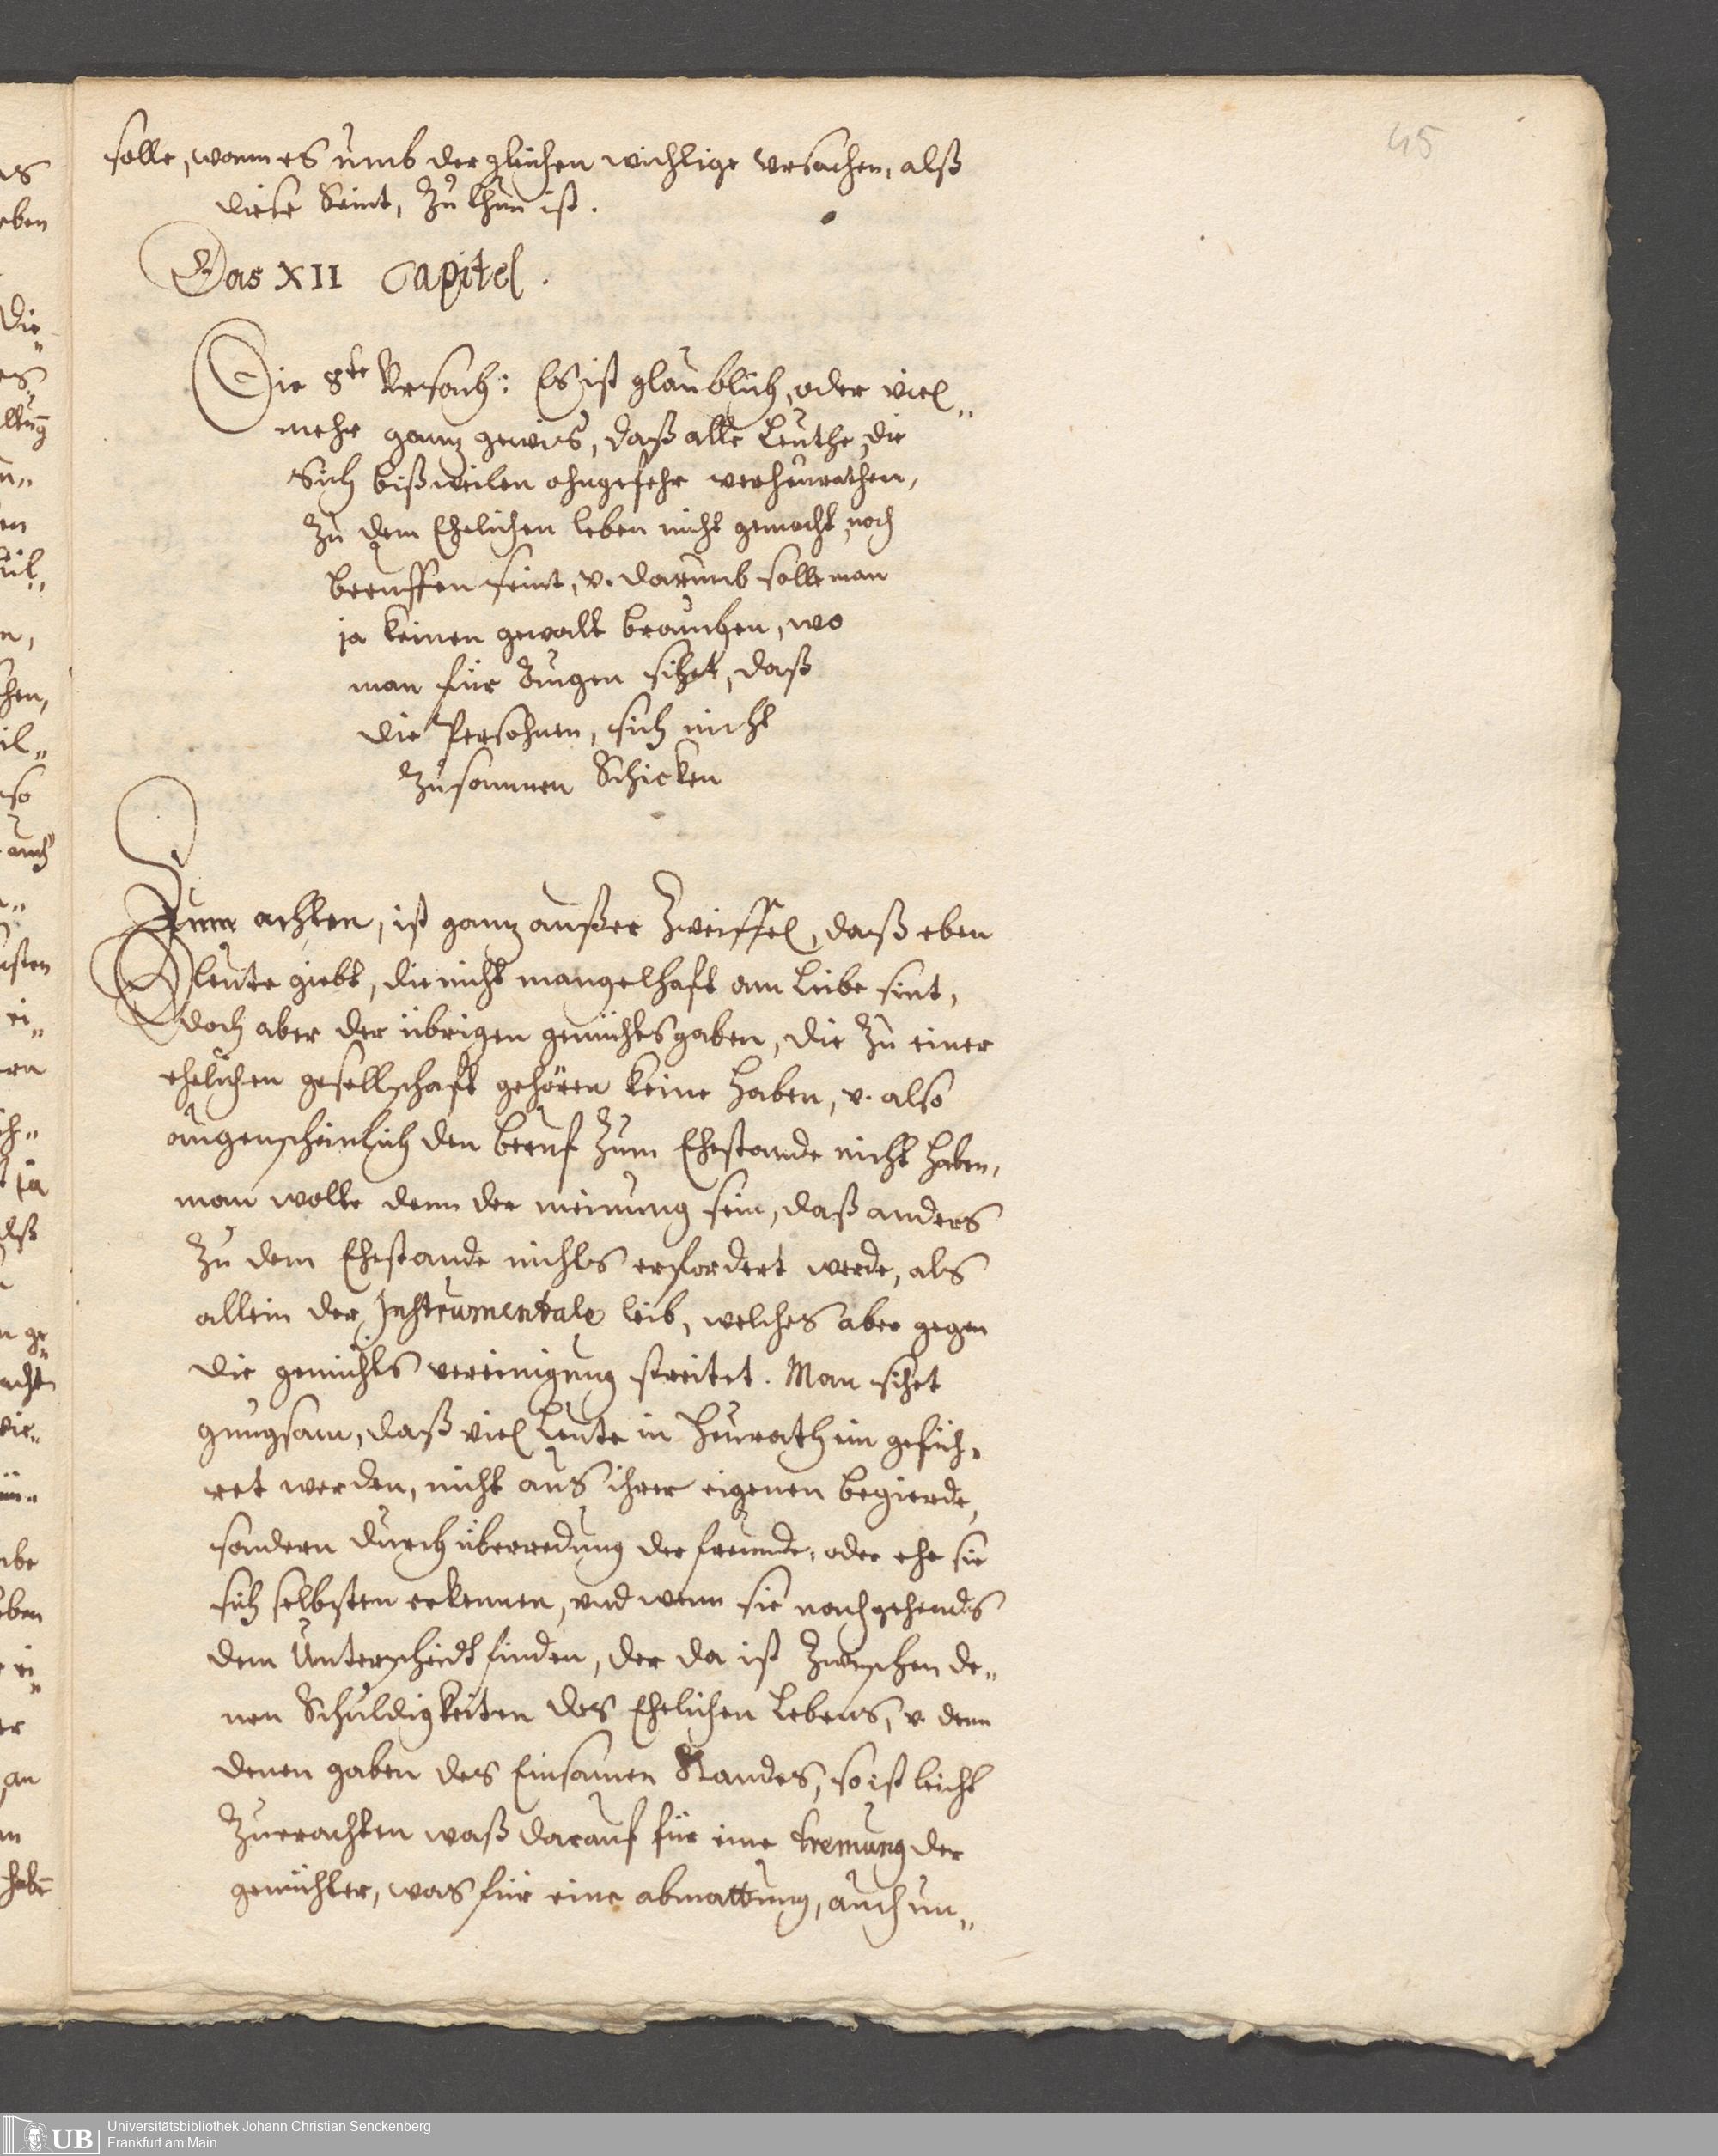 45
solle, wann es umb der gleichen wichtige ursachen, alß
diese Seint, zu thun ist.
Das XII Capitel.
Die 8te Ursach: Es ist glaublich, oder viel„
mehr gantz gewis, daß alle Leuthe, die
Sich bißweilen ohngefehr verheurathen,
zu dem Ehelichen leben nicht gemacht, noch
beruffen seint, v. darumb solle man
ja keinen gewalt brauchen, wo
man für Augen sihet, daß
die Persohnen, sich nicht
zusammen Schicken
Zum achten, ist gantz außer Zweiffel, daß eben
leute giebt, die nicht mangelhaft am Leibe sint,
doch aber der übrigen gemühtsgaben, die zu einer
ehelichen gesellschaft gehören keine haben, v. also
augenscheinlich den beruf zum Ehestande nicht haben,
man wolte denn der meinung sein, daß anders
zu dem Ehestande nichts erfordert werde, als
allein der Instrumentale leib, welches aber gegen
die gemühts vereinigung streitet. Man sihet
gnugsam, daß viel Leute in Heurath ein gefüh„
ret werden, nicht aus ihrer eigenen begierde,
sondern durch überredung der freunde, oder ehe sie
sich selbsten erkennen, und wenn sie nachgehends
den Unterscheidt finden, der da ist zwischen de„
nen Schuldigkeiten des Ehelichen Lebens, v. denn
denen gaben des Einsamen Standes, so ist leicht
zuerachten waß darauf für eine trennung der
gemühter, was für eine abmattung, auch un„
Universitätsbibliothek Johann Christian Senckenberg
UB Frankfurt am Main